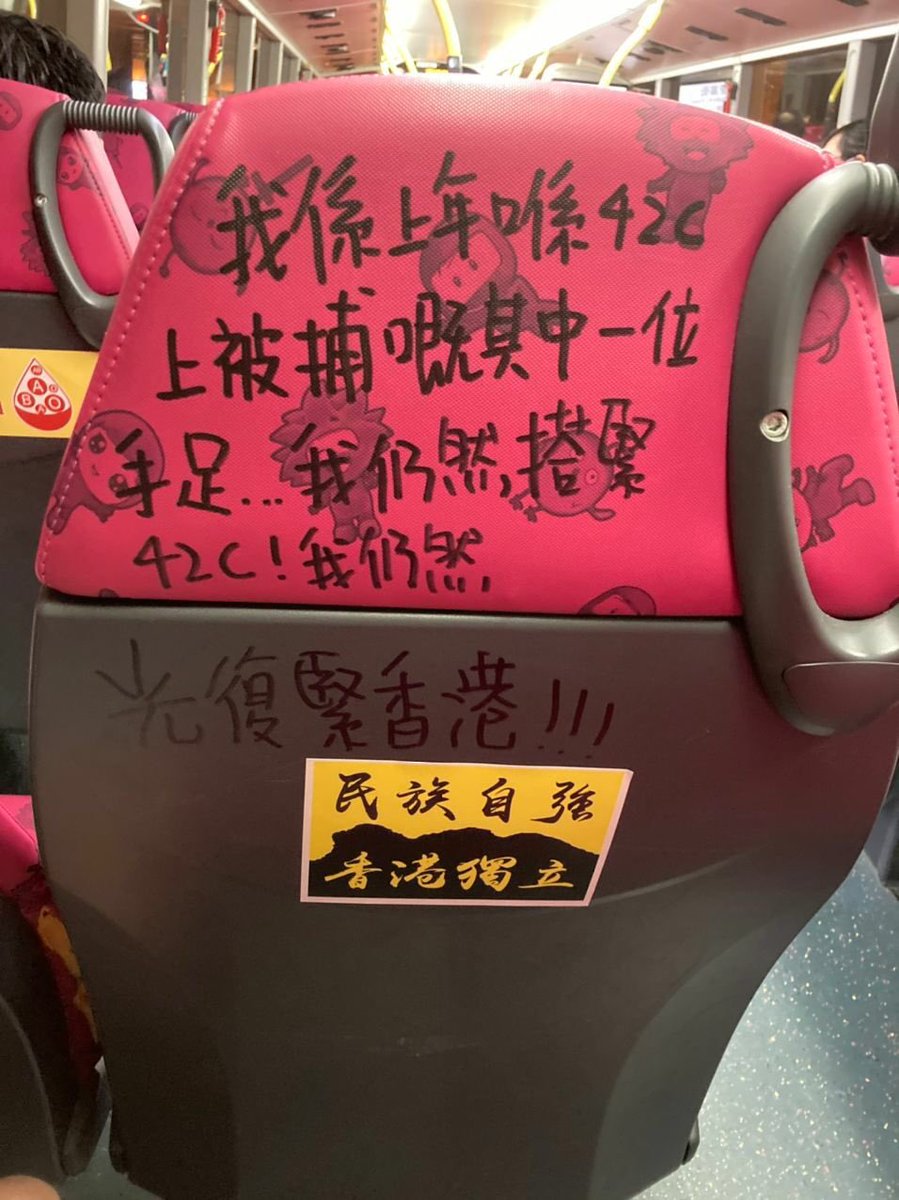 我係上年喺42C
上被捕嘅其中一位
手足...我仍然搭緊
42C!我仍然
光復緊香港!!!
民族自強
香港獨立